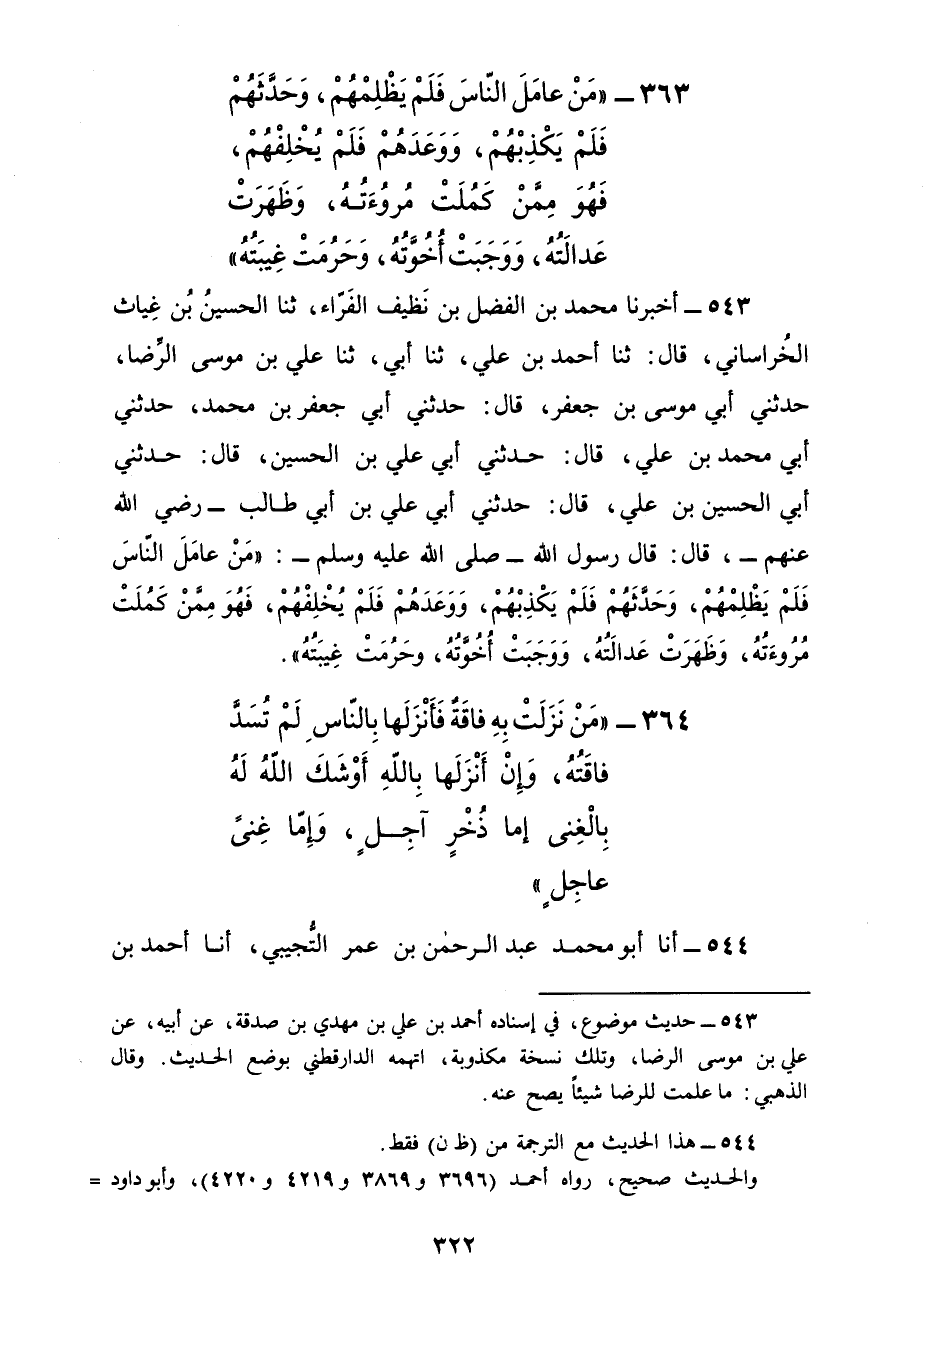 ٣٦٣ ــ «مَنْ عامَلَ النَّاسَ فَلَمْ يَظْلِمْهُمْ، وَحَدَّثَهُمْ
فَلَمْ يَكْذِبْهُمْ، وَوَعَدَهُمْ فَلَمْ يُخْلِفْهُمْ،
فَهُوَ مِمَّنْ كَمُلَتْ مُروُءَتُـهُ، وَظَهَرَتْ
عَدالَتُهُ، وَوَجَبَتْ أُخُوَّتُهُ، وَحَرُمَتْ غِيبَتُهُ»
٥٤٣ ــ أخبرنا محمد بن الفضل بن نَظيف الفَرّاء، ثنا الحسينُ بُن غِياث
الخُراساني، قال: ثنا أحمد بن علي، ثنا أبي، ثنا علي بن موسى الرِّضا،
حدثني أبي موسى بن جعفر، قال: حدثني أبي جعفر بن محمد، حدثني
أبي محمد بن علي، قال: حـدثني أبي علي بن الحسين، قال: حـدثني
أبي الحسين بن علي، قال: حدثني أبي علي بن أبي طـالب ــ رضي الله
عنهم ــ، قال: قال رسول الله ــ صلى الله عليه وسلم ــ: «مَنْ عامَلَ النَّاسَ
فَلَمْ يَظْلِمْهُمْ، وَحَدَّثَهُمْ فَلَمْ يَكْذِبْهُمْ، وَوَعَدَهُمْ فَلَمْ يُخْلِفْهُمْ، فَهُوَ مِمَّنْ كَمُلَتْ
مُرُوءَتُهُ، وَظَهَرَتْ عَدالَتُهُ، وَوَجَبَتْ أُخُوَّتُهُ، وحَرُمَتْ غِيبَتُهُ».
٣٦٤ ــ «مَنْ نَزَلَتْ بِهِ فاقَةٌ فَأَنْزَلَها بِالنَّاسِ لَمْ تُسَدَّ
فاقَتُهُ، وَإِنْ أَنْزَلَها بِاللَّهِ أَوْشَكَ اللَّهُ لَهُ
بِالْغِنى إما ذُخْرٍ آجِــلٍ، وَإِمّا غِنىً
عاجِلٍ»
٥٤٤ ــ أنا أبو محمـد عبد الـرحمٰن بن عمر التُّجيبي، أنـا أحمد بن
٥٤٣ ــ حديث موضوع، في إسناده أحمد بن علي بن مهدي بن صدقة، عن أبيه، عن
علي بن موسى الرضا، وتلك نسخة مكذوبة، اتهمه الدارقطني بوضع الحـديث. وقال
الذهبي: ما علمت للرضا شيئاً يصح عنه.
٥٤٤ ــ هذا الحديث مع الترجمة من (ظ ن) فقط.
والحـديث صحيح، رواه أحمد (٣٦٩٦ و ٣٨٦٩ و ٤٢١٩ و ٤٢٢٠)، وأبو داود =
٣٢٢